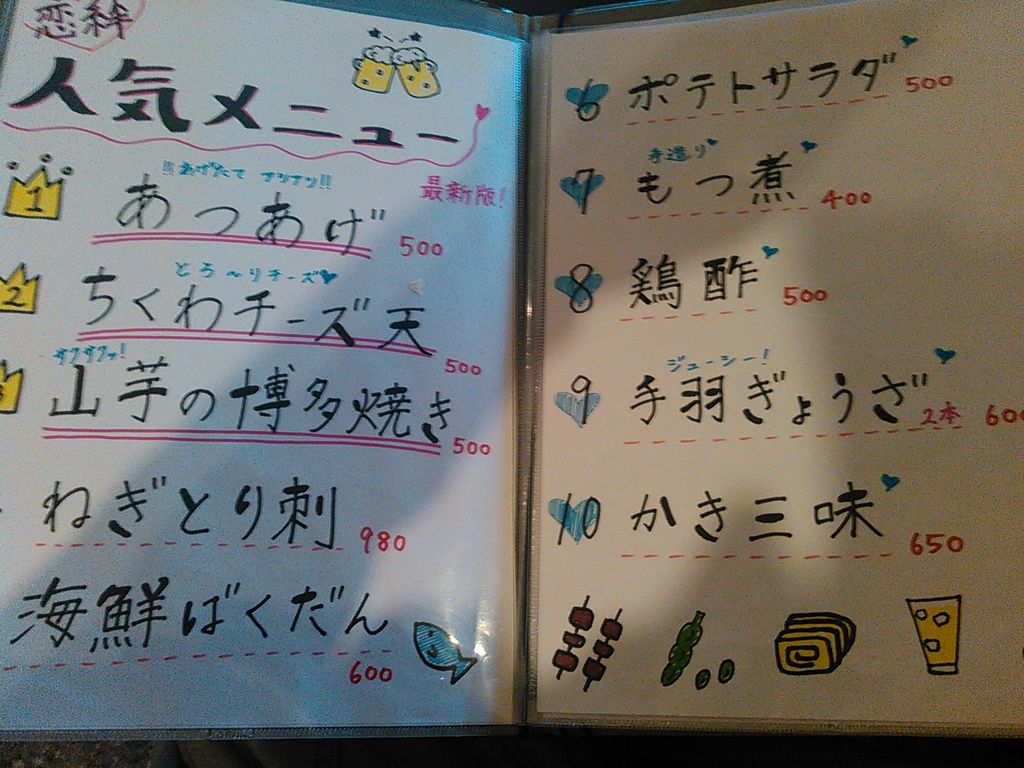 恋絆
人気メニュー
最新版!
1 !!あげたて アツアツ!!
あつあげ 500
2 とろ~りチーズ
ちくわチーズ天 500
サクサクッ!
山芋の博多焼き 500
ねぎとり刺 980
海鮮ばくだん 600
6 ポテトサラダ 500
手造り
7 もつ煮 400
8 鶏酢 500
ジューシー!
9 手羽ぎょうざ 2本 600
10 かき三味 650